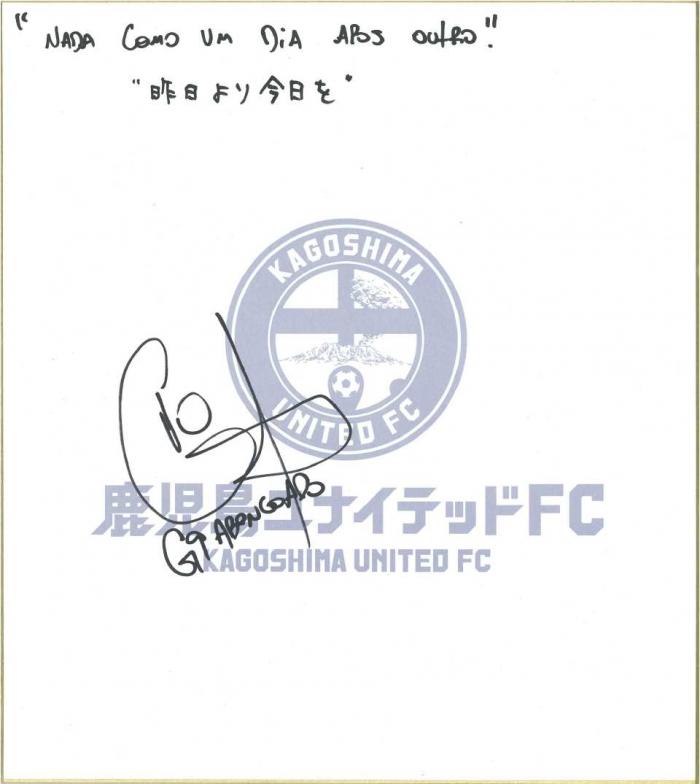 "NADA COMO UM DIA APOS OUTRO."
"昨日より今日を"
KAGOSHIMA
UNITED FC
鹿児島ユナイテッドFC
KAGOSHIMA UNITED FC